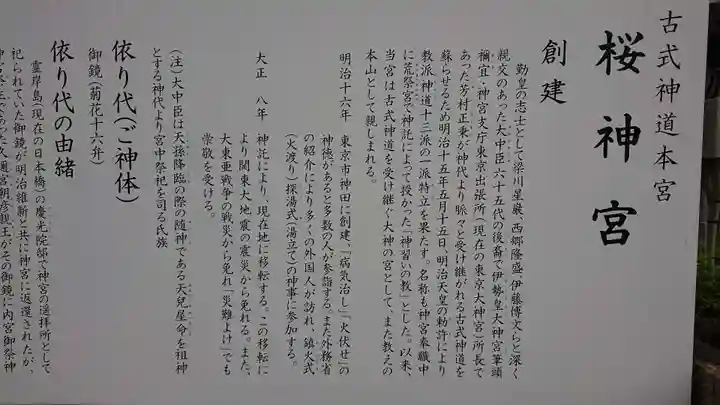 古式神道本宮
桜神宮
創建
勤皇の志士として梁川星巌、西郷隆盛、伊藤博文らと深く
親交のあった大中臣六十五代の後裔で伊勢皇大神宮筆頭
禰宜・神宮支庁東京出張所(現在の東京大神宮)所長で
あった芳村正秉が神代より脈々と受け継がれる古式神道を
蘇らせるため明治十五年五月十五日、明治天皇の勅許により
教派神道十三派の一派特立を果たす。名称も神宮奉職中
に荒祭宮で神託によって授かった「神習いの教」とした。以来、
当宮は古式神道を受け継ぐ大神の宮として、また教えの
本山として親しまれる。
明治十六年 東京市神田に創建、「病気治し」「火伏せ」の
神徳があると多数の人が参詣する。また外務省
の紹介により多くの外国人が訪れ、鎮火式
(火渡り)探湯式(湯立て)の神事に参加する。
大正 八年 神託により、現在地に移転する。この移転に
より関東大地震の震災から免れる。また、
大東亜戦争の戦災から免れ「災難よけ」でも
崇敬を受ける。
(注)大中臣は天孫降臨の際の随神である天兒屋命を祖神
とする神代より宮中祭祀を司る氏族
依り代(ご神体)
御鏡(菊花十六弁)
依り代の由緒
霊岸島(現在の日本橋)の慶光院邸で神宮の遥拝所として
祀られていた御鏡が明治維新と共に神宮に返還されたが、
久邇宮朝彦親王がその御鏡に内宮御祭神